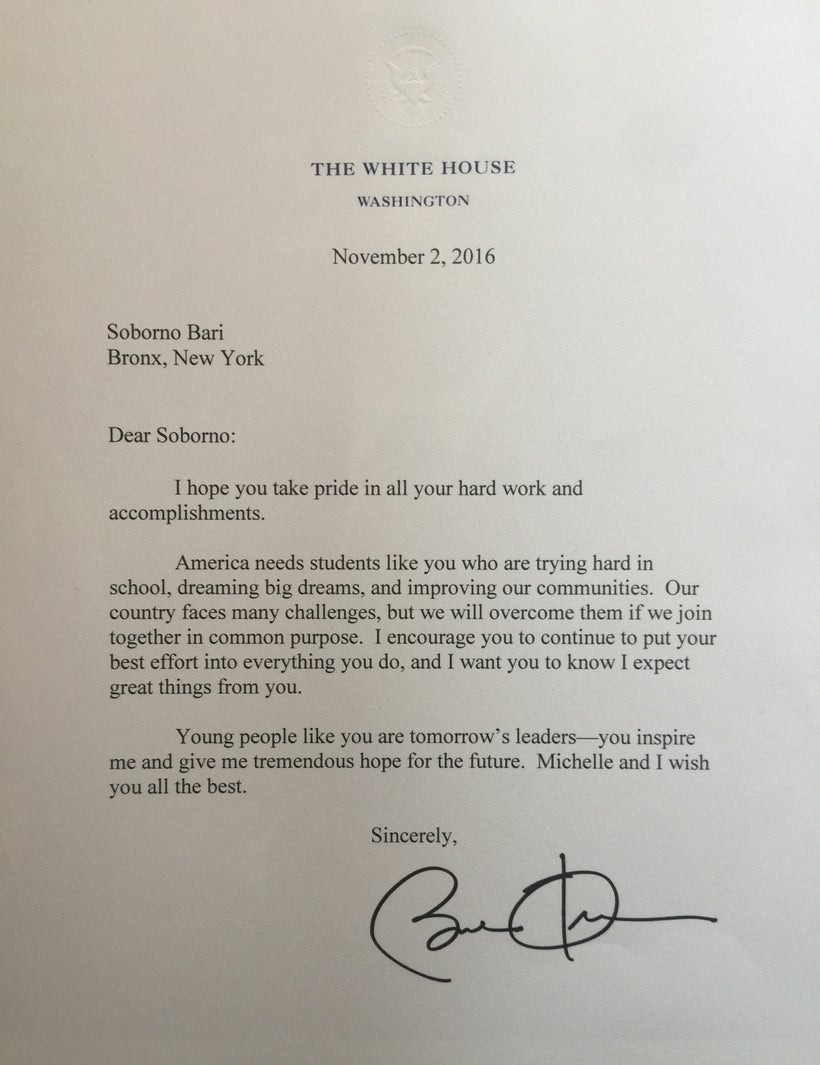 THE WHITE HOUSE
WASHINGTON
November 2, 2016
Soborno Bari
Bronx, New York
Dear Soborno:
I hope you take pride in all your hard work and
accomplishments.
America needs students like you who are trying hard in
school, dreaming big dreams, and improving our communities.  Our
country faces many challenges, but we will overcome them if we join
together in common purpose.  I encourage you to continue to put your
best effort into everything you do, and I want you to know I expect
great things from you.
Young people like you are tomorrow’s leaders—you inspire
me and give me tremendous hope for the future.  Michelle and I wish
you all the best.
Sincerely,